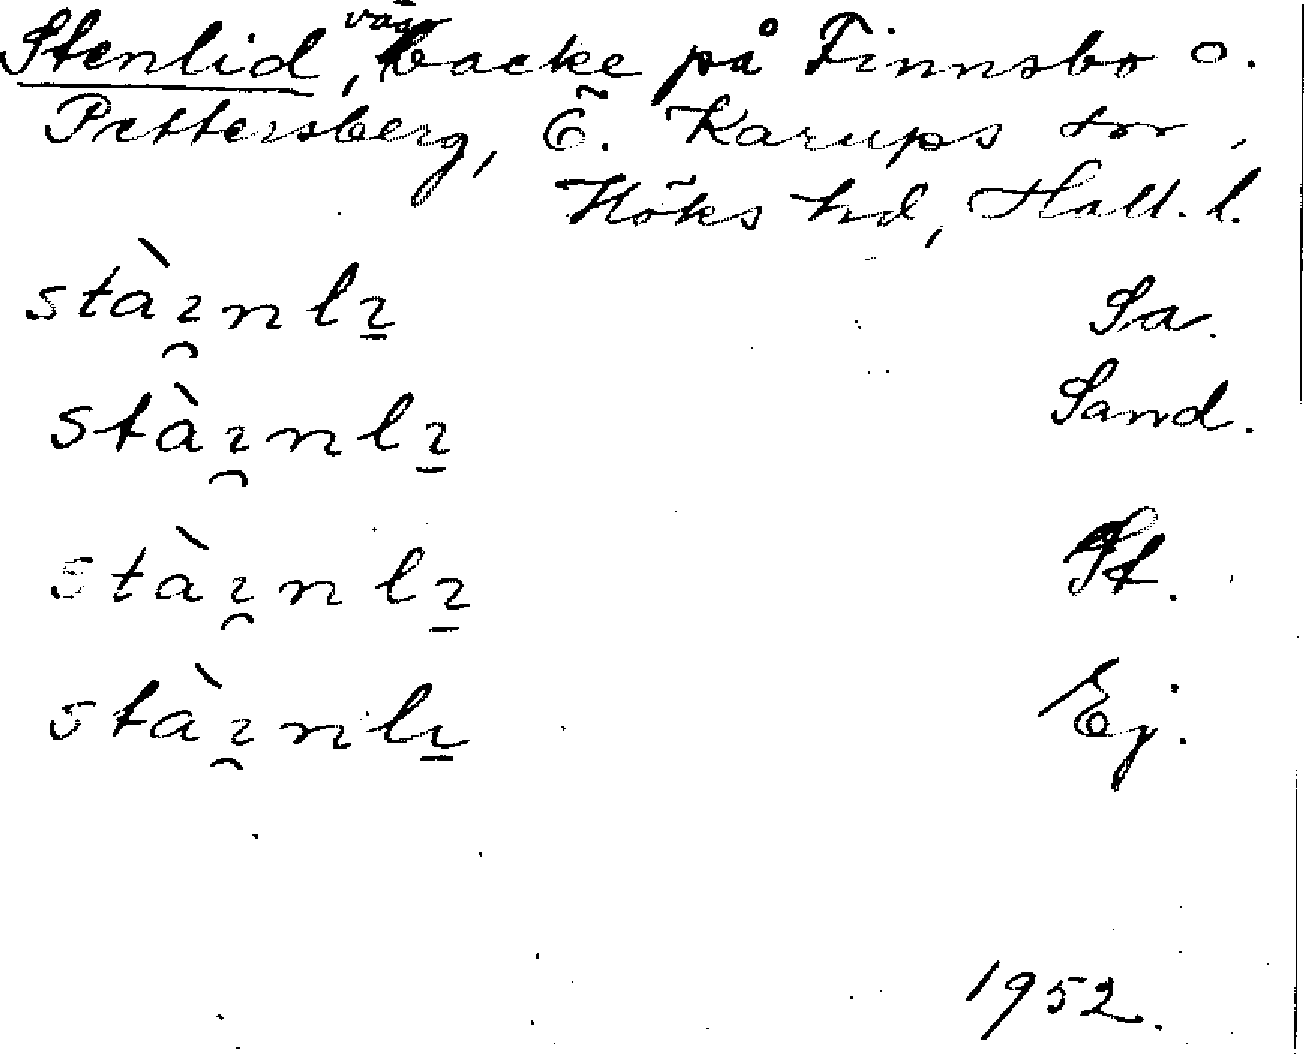 Stenlid, vägbacke på Finnsbo o.
Pettersberg, Ö. Karups sn,
Höks hd, Hall. l.
stàɪ̯nlɪ̠ Sa.
stàɪ̯nlɪ̠ Sand.
stàɪ̯nlɪ̠ St.
stàɪ̯nlɪ̠ Ej.
1952.